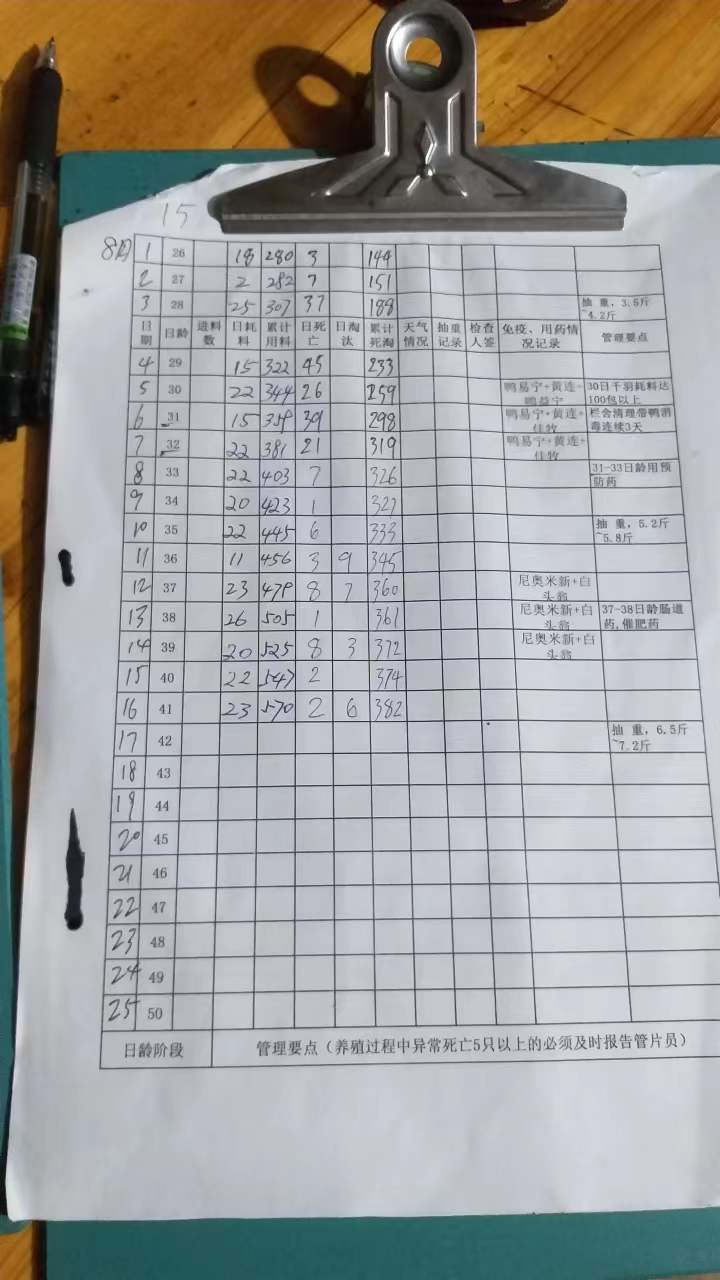 15
8月 1 26 18 280 3 144
2 27 2 282 7 151
3 28 25 307 37 188 抽重，3.5斤~4.2斤
日期 日龄 进料数 日耗料 累计用料 日死亡 日淘汰 累计死淘 天气情况 抽重记录 检查人签 免疫、用药情况记录 管理要点
4 29 15 322 45 233
5 30 22 344 26 259 鸭易宁+黄连+鸭益宁 30日千羽耗料达100包以上
6 31 15 359 39 298 鸭易宁+黄连+佳牧 栏舍清理带鸭消毒连续3天
7 32 22 381 21 319 鸭易宁+黄连+佳牧
8 33 22 403 7 326 31-33日龄用预防药
9 34 20 423 1 327
10 35 22 445 6 333 抽重，5.2斤~5.8斤
11 36 11 456 3 9 345
12 37 23 479 8 7 360 尼奥米新+白头翁
13 38 26 505 1 361 尼奥米新+白头翁 37-38日龄肠道药,催肥药
14 39 20 525 8 3 372 尼奥米新+白头翁
15 40 22 547 2 374
16 41 23 570 2 6 382
17 42 抽重，6.5斤~7.2斤
18 43
19 44
20 45
21 46
22 47
23 48
24 49
25 50
日龄阶段 管理要点（养殖过程中异常死亡5只以上的必须及时报告管片员）